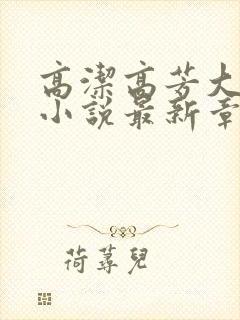 高潔高芳大
小說最新章
荷蕁兒